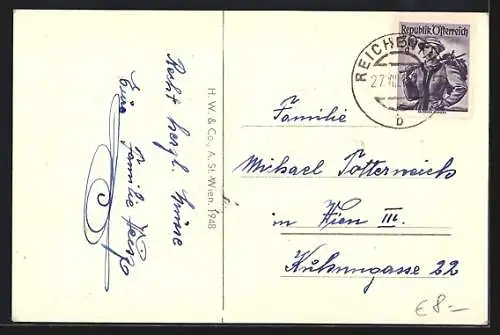 Recht herzl. Grüsse
Eure Familie
H. W. & Co., A. St.-Wien. 1948
Republik Österreich
27. VII.
b
Familie
Michael Totterweich
in Wien III.
Kübecgasse 22
€ 8.-